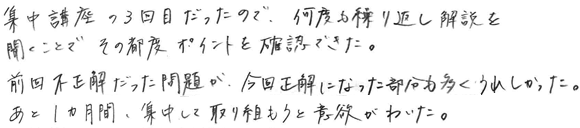 集中講座の3回目だったので、何度も繰り返し解説を
聞くことでその都度ポイントを確認できた。
前回不正解だった問題が、今回正解になった部分も多くうれしかった。
あと1カ月間、集中して取り組もうと意欲がわいた。